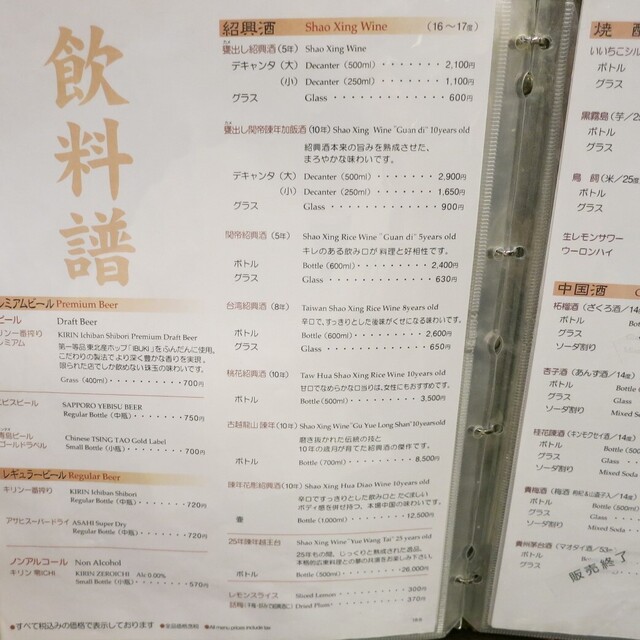 飲料譜
紹興酒 Shao Xing Wine (16〜17度)
甕出し紹興酒 (5年) Shao Xing Wine
デキャンタ (大) Decanter (500ml) 2,100円
(小) Decanter (250ml) 1,100円
グラス Glass 600円
甕出し関帝陳年加飯酒 (10年) Shao Xing Wine "Guan di" 10years old
紹興酒本来の旨みを熟成させた、
まろやかな味わいです。
デキャンタ (大) Decanter (500ml) 2,900円
(小) Decanter (250ml) 1,650円
グラス Glass 900円
関帝紹興酒 (5年) Shao Xing Rice Wine "Guan di" 5years old
キレのある飲み口が料理と好相性です。
ボトル Bottle (600ml) 2,400円
グラス Glass 630円
台湾紹興酒 (8年) Taiwan Shao Xing Rice Wine 8years old
辛口で、すっきりとした後味がくせになる味わいです。
ボトル Bottle (600ml) 2,600円
グラス Glass 650円
桃花紹興酒 (10年) Taw Hua Shao Xing Rice Wine 10years old
甘口でなめらかな口当りは、女性にもおすすめです。
ボトル Bottle (500ml) 3,500円
古越龍山 陳年 (10年) Shao Xing Wine "Gu Yue Long Shan" 10years old
磨き抜かれた伝統の技と
10年の歳月が育てた紹興酒の傑作です。
ボトル Bottle (700ml) 8,500円
陳年花彫紹興酒 (10年) Shao Xing Hua Diao Wine 10years old
辛口ですっきりとした飲み口とたくましい
ボディ感を併せ持つ、本場中国の味わいです。
壷 Bottle (1,000ml) 12,500円
25年陳年越王台 Shao Xing Wine "Yue Wang Tai" 25 years old
25年もの間、じっくりと熟成された逸品。
本格的広東料理との最高の共演をお楽しみ下さい。
ボトル Bottle (500ml) 26,000円
レモンスライス Sliced Lemon 300円
話梅 Dried Plum 370円
レミアムビール Premium Beer
ビール Draft Beer
リン一番搾り KIRIN Ichiban Shibori Premium Draft Beer
レミアム 第一等品東北産ホップ「IBUKI」をふんだんに使用。
こだわりの製法でより深く豊かな香りを実現。
限られた店でしか飲めない珠玉の味わいです。
Grass (400ml) 700円
ビスビール SAPPORO YEBISU BEER
Regular Bottle (中瓶) 750円
青島ビール Chinese TSING TAO Gold Label
ゴールドラベル Small Bottle (小瓶) 700円
レギュラービール Regular Beer
キリン一番搾り KIRIN Ichiban Shibori
Regular Bottle (中瓶) 720円
アサヒスーパードライ ASAHI Super Dry
Regular Bottle (中瓶) 720円
ノンアルコール Non Alcohol
キリン 零ICHI KIRIN ZEROICHI Alc 0.00%
Small Bottle (小瓶) 570円
●すべて税込みの価格で表示しております ●全品価格含税 ●All menu prices include tax
焼 酎
いいちこシル
ボトル
グラス
黒霧島 (芋/25
ボトル
グラス
鳥飼 (米/25度
ボトル
グラス
生レモンサワー
ウーロンハイ
中国酒
柘榴酒 (ざくろ酒/14
ボトル Bottle
グラス Glass
ソーダ割り Mixed
杏子酒 (あんず酒/14
ボトル Bottle
グラス Glass
ソーダ割り Mixed
桂花陳酒 (キンモクセイ酒/14
ボトル Bottle (500
グラス Glass
ソーダ割り Mixed Soda
貴梅酒
ボトル Bottle (500ml)
グラス Glass
ソーダ割り Mixed Soda
貴州茅台酒 (マオタイ酒/53
ボトル
販売終了